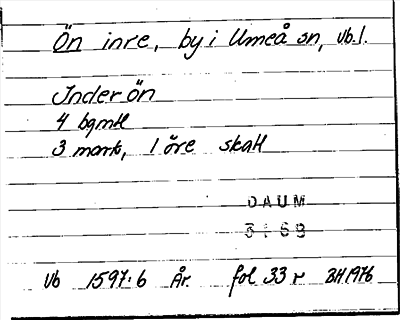 Ön inre, by i Umeå sn, Vb.l.
Inder ön
4 bgmtl
3 mark, 1 öre skatt
DAUM
3169
Vb 1597:6 År. fol 33 r BH 1976